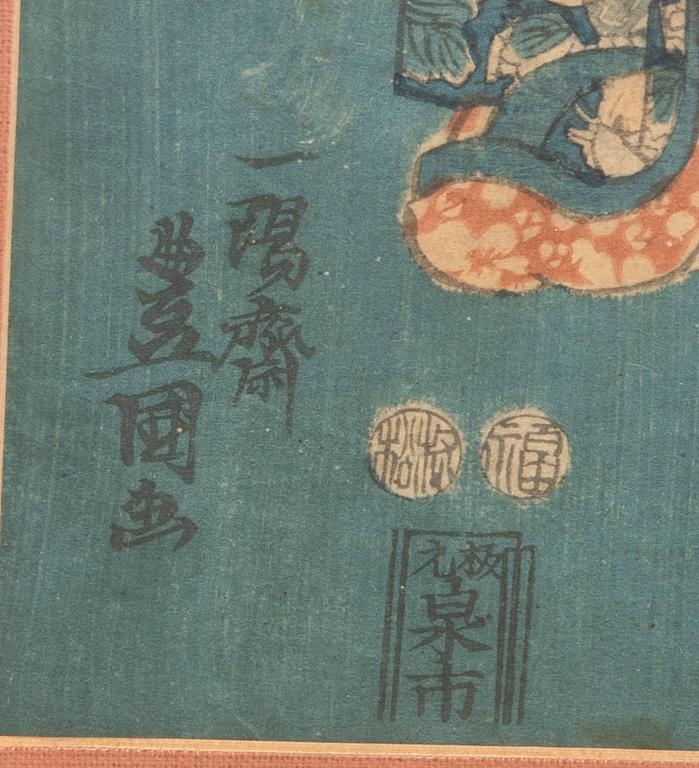 一陽齋
豊國画
福
村松
板元
泉市